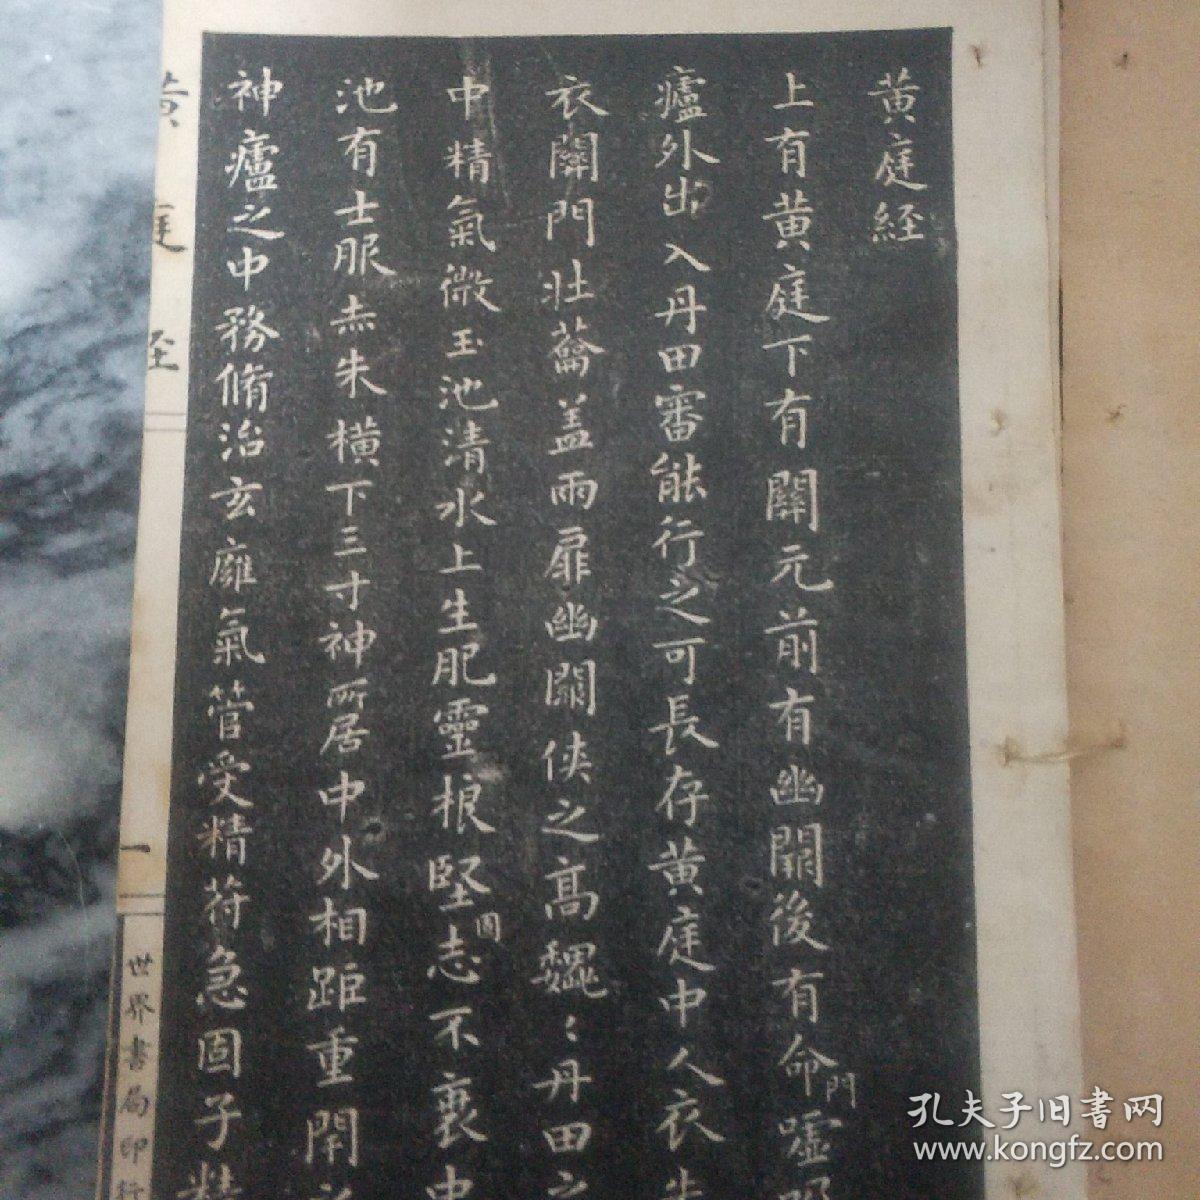 黄庭經
上有黄庭下有關元前有幽關後有命門噓吸
廬外出入丹田審能行之可長存黄庭中人衣朱
衣關門壯蘥盖兩扉幽關侠之髙巍〻丹田之
中精氣微玉池清水上生肥靈根堅固志不衰中
池有士服赤朱橫下三寸神所居中外相距重閇之
神廬之中務脩治玄廱氣管受精符急固子精
黄庭
一
世界書局印行
孔夫子旧书网
www.kongfz.com